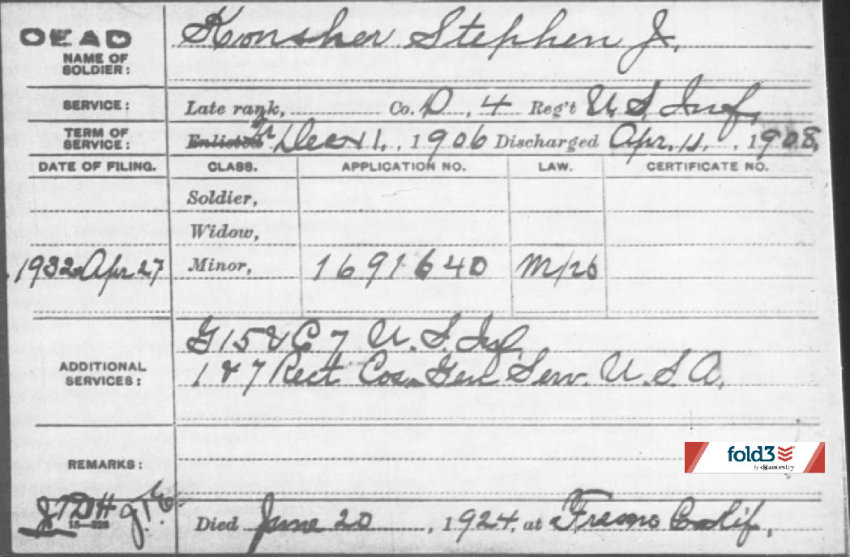 DEAD
Konsher Stephen J.
NAME OF SOLDIER:
SERVICE: Late rank, Co. D, 4 Reg't U.S. Inf.,
TERM OF SERVICE: Enlisted Dec 11, 1906 Discharged Apr. 11, 1908,
DATE OF FILING. CLASS. APPLICATION NO. LAW. CERTIFICATE NO.
Soldier,
Widow,
1932 Apr 27 Minor, 1691640
G 15 & C 7 U.S. Inf
ADDITIONAL SERVICES: 1 & 7 Rect Cos. Genl Serv. U.S.A.
fold3
by ancestry
REMARKS:
Died June 20, 1924, at Fresno Calif.